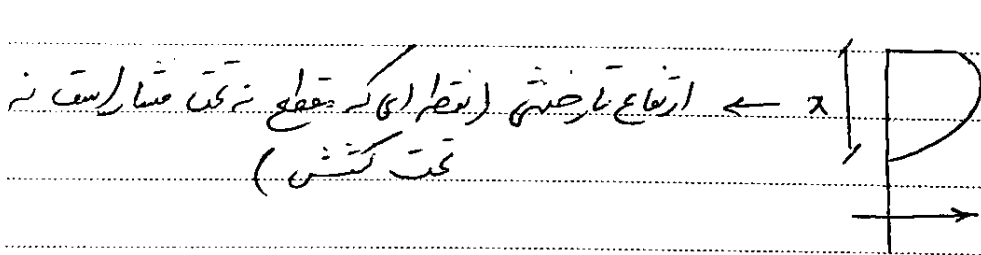 x ← ارتفاع تارخنثی (نقطه ای که مقطع نه تحت فشار است نه
تحت کشش)